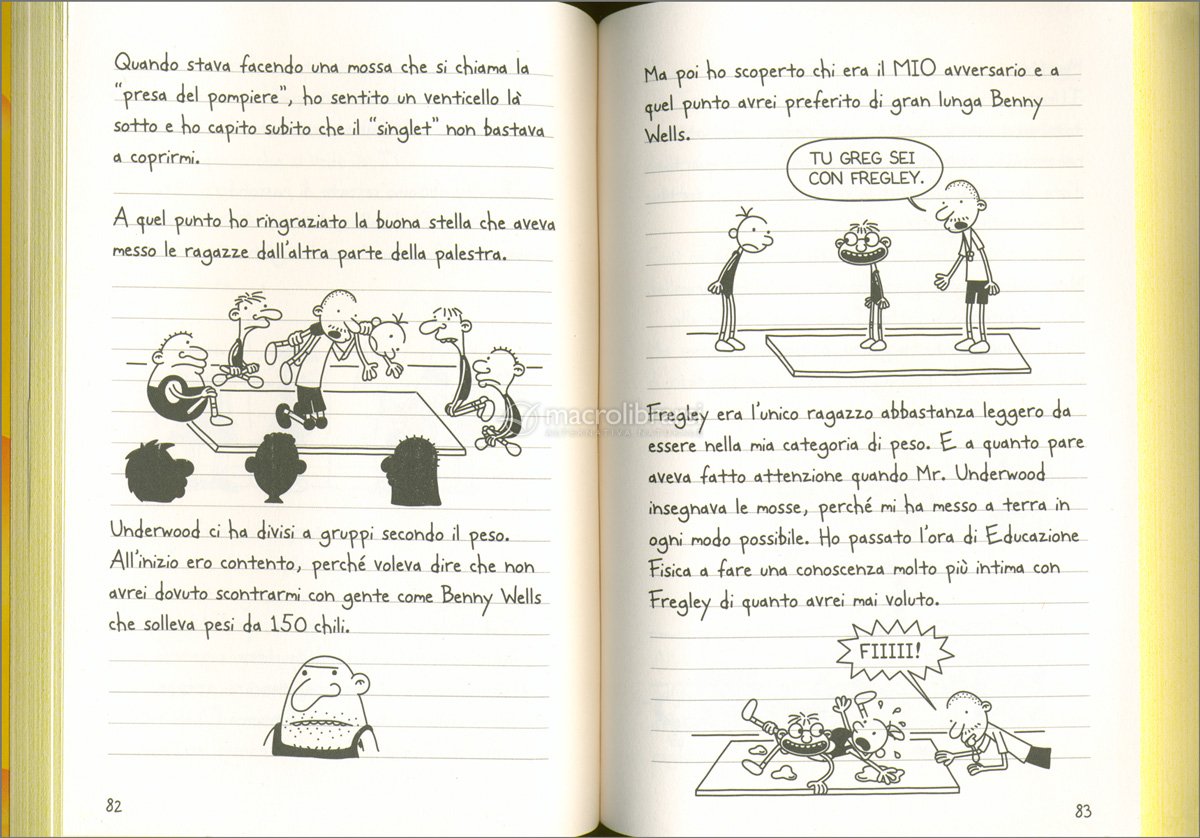 Quando stava facendo una mossa che si chiama la
"presa del pompiere", ho sentito un venticello là
sotto e ho capito subito che il "singlet" non bastava
a coprirmi.
A quel punto ho ringraziato la buona stella che aveva
messo le ragazze dall'altra parte della palestra.
Underwood ci ha divisi a gruppi secondo il peso.
All'inizio ero contento, perché voleva dire che non
avrei dovuto scontrarmi con gente come Benny Wells
che solleva pesi da 150 chili.
82
Ma poi ho scoperto chi era il MIO avversario e a
quel punto avrei preferito di gran lunga Benny
Wells.
TU GREG SEI
CON FREGLEY.
Fregley era l'unico ragazzo abbastanza leggero da
essere nella mia categoria di peso. E a quanto pare
aveva fatto attenzione quando Mr. Underwood
insegnava le mosse, perché mi ha messo a terra in
ogni modo possibile. Ho passato l'ora di Educazione
Fisica a fare una conoscenza molto più intima con
Fregley di quanto avrei mai voluto.
FIIIII!
83